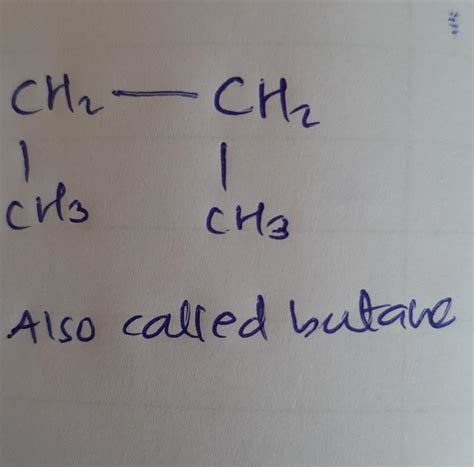 CH₂ — CH₂
| |
CH₃ CH₃
Also called butane